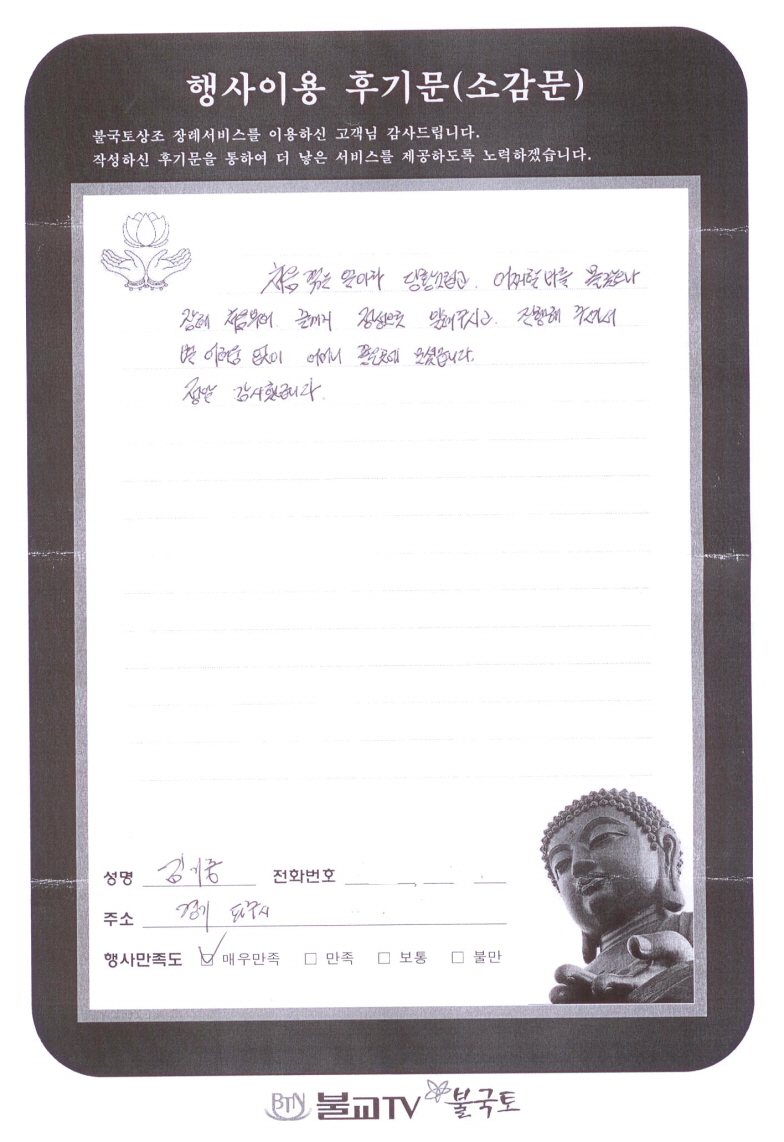 행사이용 후기문(소감문)
불국토상조 장례서비스를 이용하신 고객님 감사드립니다.
작성하신 후기문을 통하여 더 낳은 서비스를 제공하도록 노력하겠습니다.
처음 겪는 일이라 당황스럽고. 어찌할 바를 몰랐으나
장례 처음부터 끝까지 정성으로 말해주시고. 진행해 주셔서
별 어려움 없이 어머니 좋은곳에 모셨습니다.
정말 감사했습니다.
성명 김기중 전화번호
주소 경기 파주시
행사만족도 ☑ 매우만족 □ 만족 □ 보통 □ 불만
BTN 불교TV 불국토